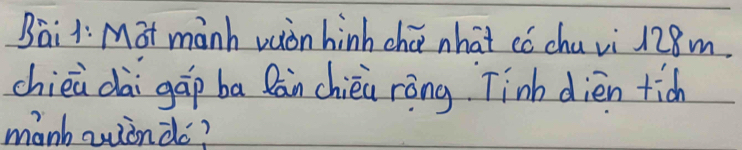 Bài 1: Một mảnh vườn hình chữ nhật có chu vi 128m.
chiều dài gấp ba lần chiều rộng. Tính diện tích
mảnh vườn đó?